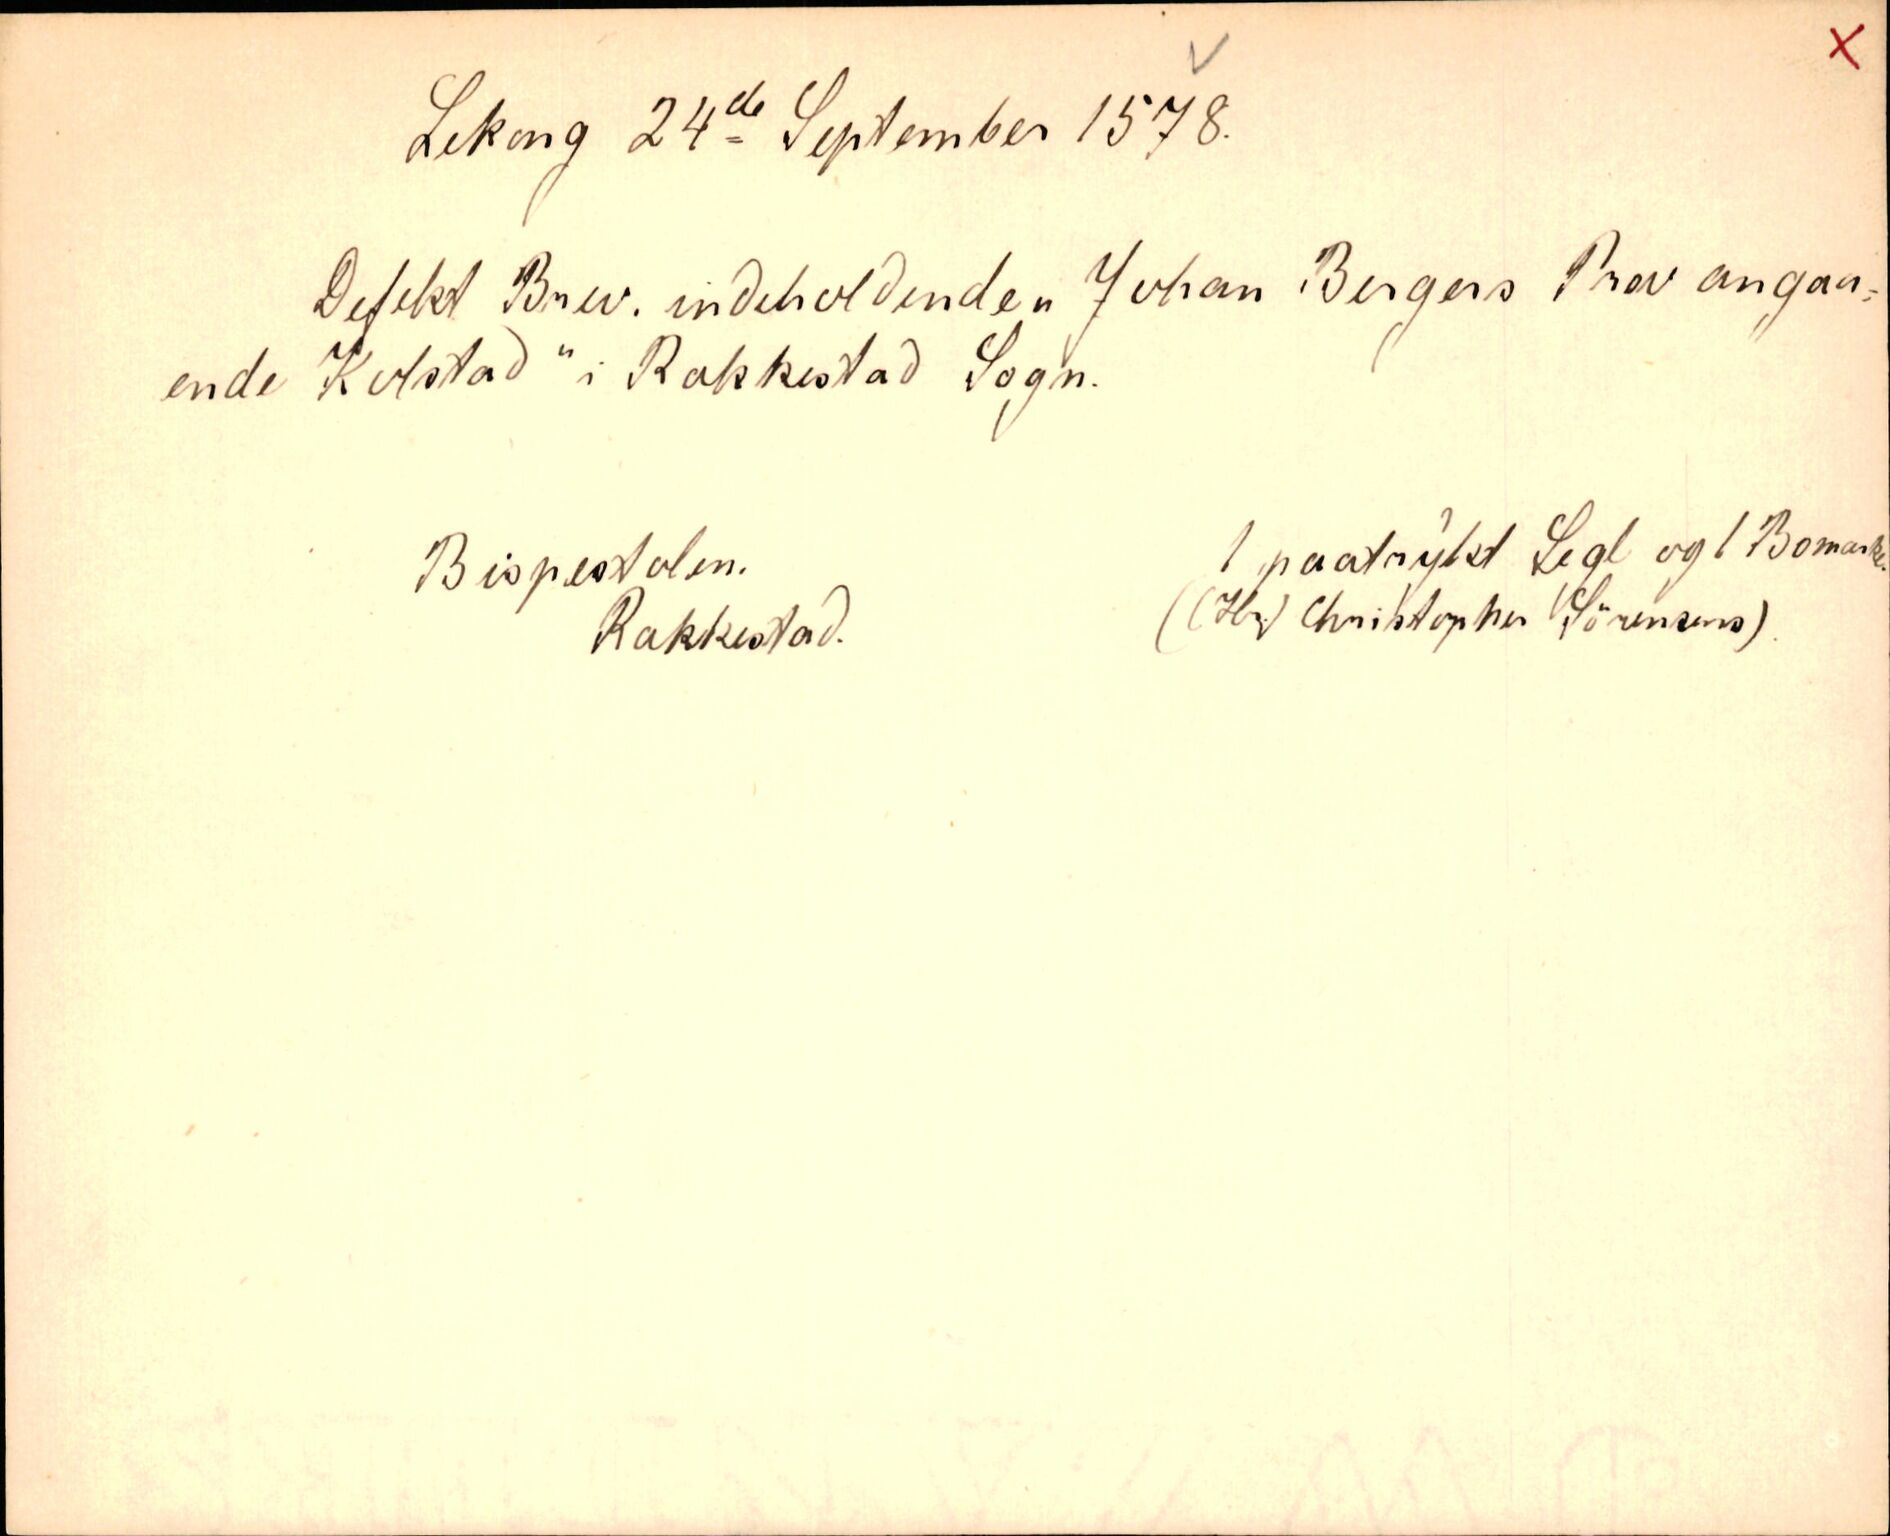 Lekang 24de September 1578.
Defekt Brev. indeholdende „Johan Bergers Prov angaa-
ende Kolstad" i Rakkestad Sogn.
Bispestolen.
Rakkestad.
1 paatrykt Segl og 1 Bomærke.
((Hr) Christopher Sörensens).